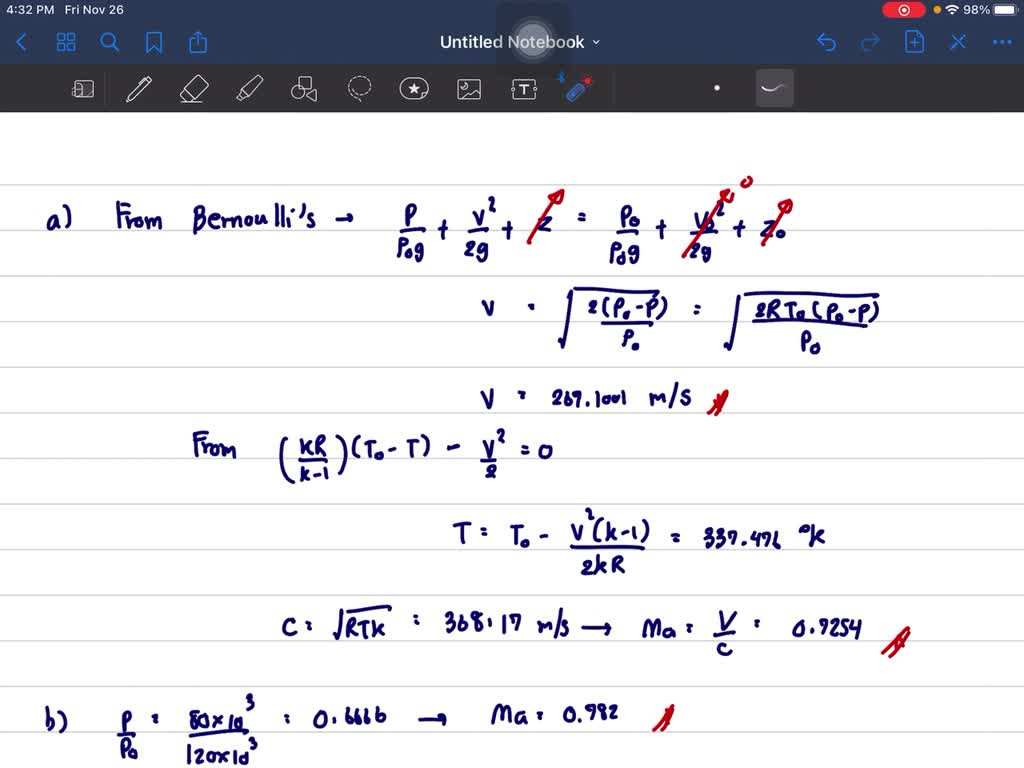 4:32 PM Fri Nov 26 98%
Untitled Notebook
T
a) From Bernoulli's → P/P₀g + V²/2g + z = P₀/P₀g + V₀²/2g + z₀
0
V = √(2(P₀-P)/P₀) = √(2RT₀(P₀-P)/P₀)
V = 267.1001 m/s
From (kR/k-1)(T₀-T) - V²/2 = 0
T = T₀ - V²(k-1)/2kR = 337.476 °k
C = √RTk = 368.17 m/s → Ma = V/C = 0.7254
b) P/P₀ = 80×10³/120×10³ = 0.6666 → Ma = 0.782